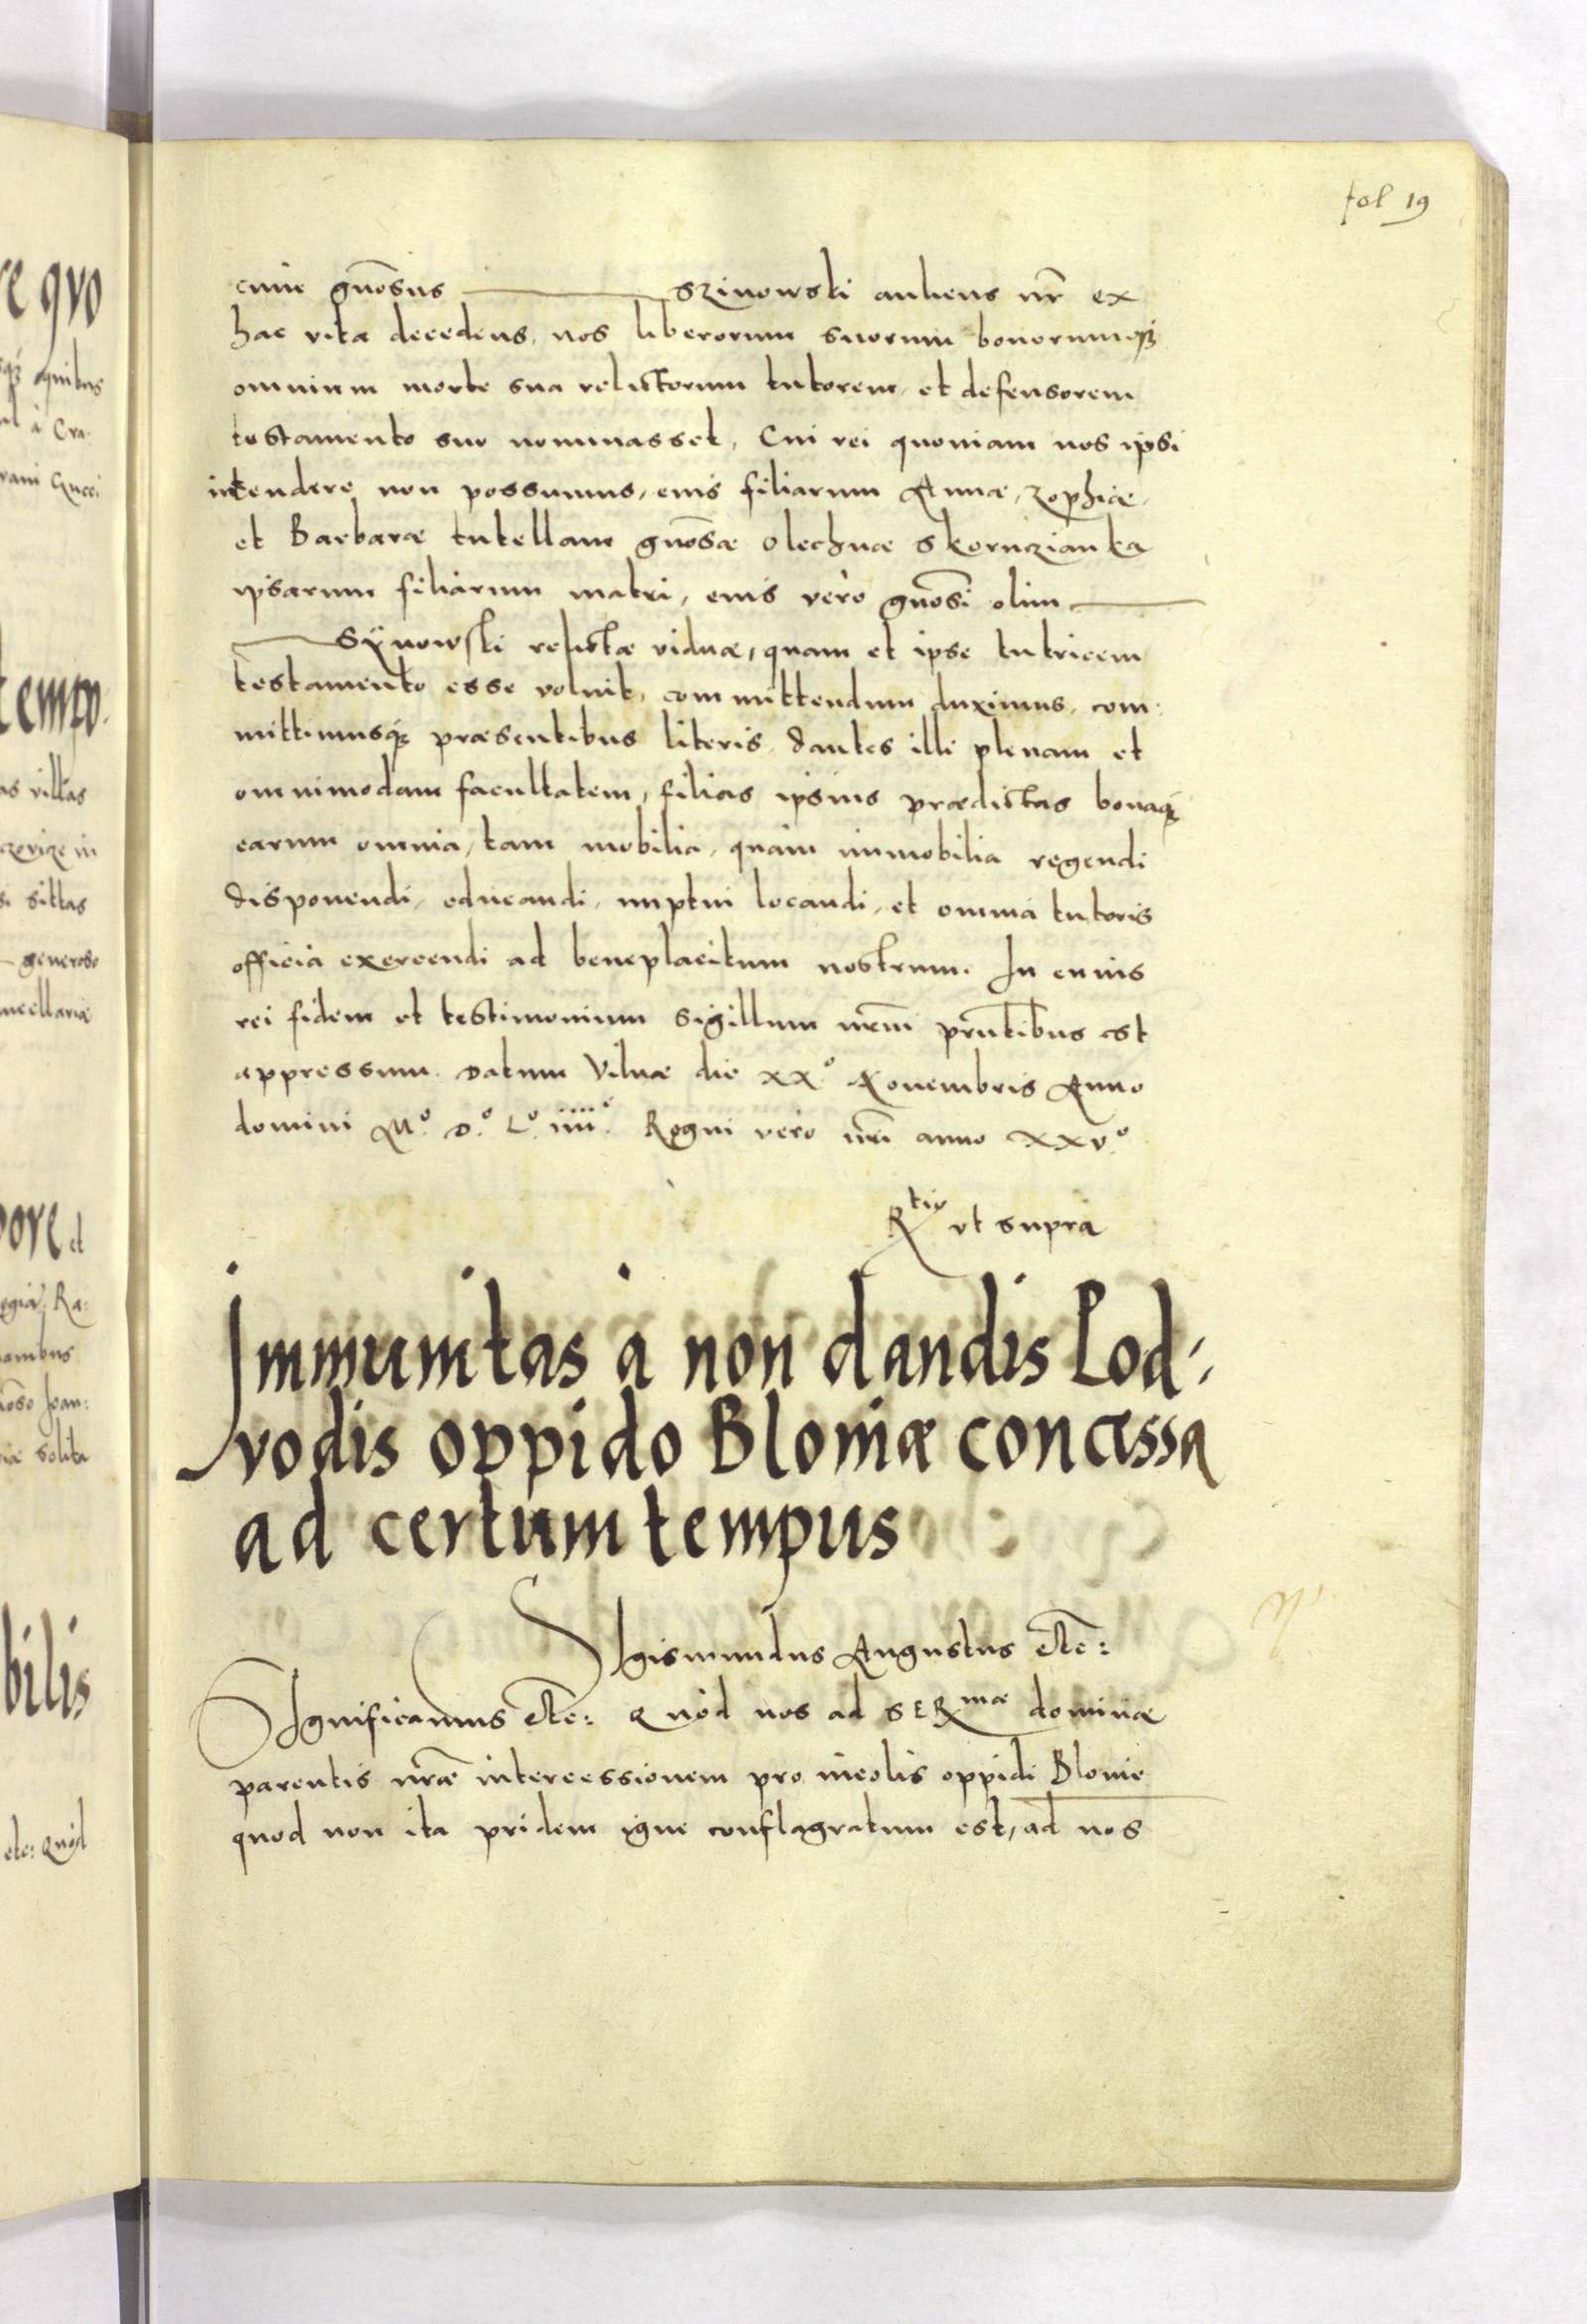 fol 19
cum gnosus Szinowski auliens nr ex
hac vita decedens, nos liberorum suorum bonorumq3
omnium morte sua relictorum tutorem, et defensorem
testamento suo nominasset, Cui rei quoniam nos ipsi
intendere non possumus, eius filiarum Annæ, Zophiæ,
et Barbaræ tutellam gnosæ Olechnæ Skornzianka
ipsarum filiarum matri, eius vero gnosi olim
Synowski relictæ viduæ, quam et ipse tutricem
testamento esse voluit, committendum duximus, com:
mittimusq3 præsentibus literis, dantes illi plenam et
omnimodam facultatem, filias ipsius prædictas bonaq3
earum omnia, tam mobilia, quam immobilia regendi
disponendi, educandi, nuptui locandi, et omnia tutoris
officia exercendi ad beneplacitum nostrum. In cuius
rei fidem et testimonium sigillum nrm prntibus est
appressum. Datum Vilnæ die xx.º Novembris Anno
domini Mº. Dº. Lº. iiii.º Regni vero nri anno xxvº.
Rtio vt supra
Immunitas à non dandis Pod:
vodis oppido Bloniæ concessa
ad certum tempus
Sigismundus Augustus etc:
Significamus etc: Quòd nos ad SERmæ dominæ
parentis nræ intercessionem pro incolis oppidi Blonie
quod non ita pridem igne conflagratum est, ad nos